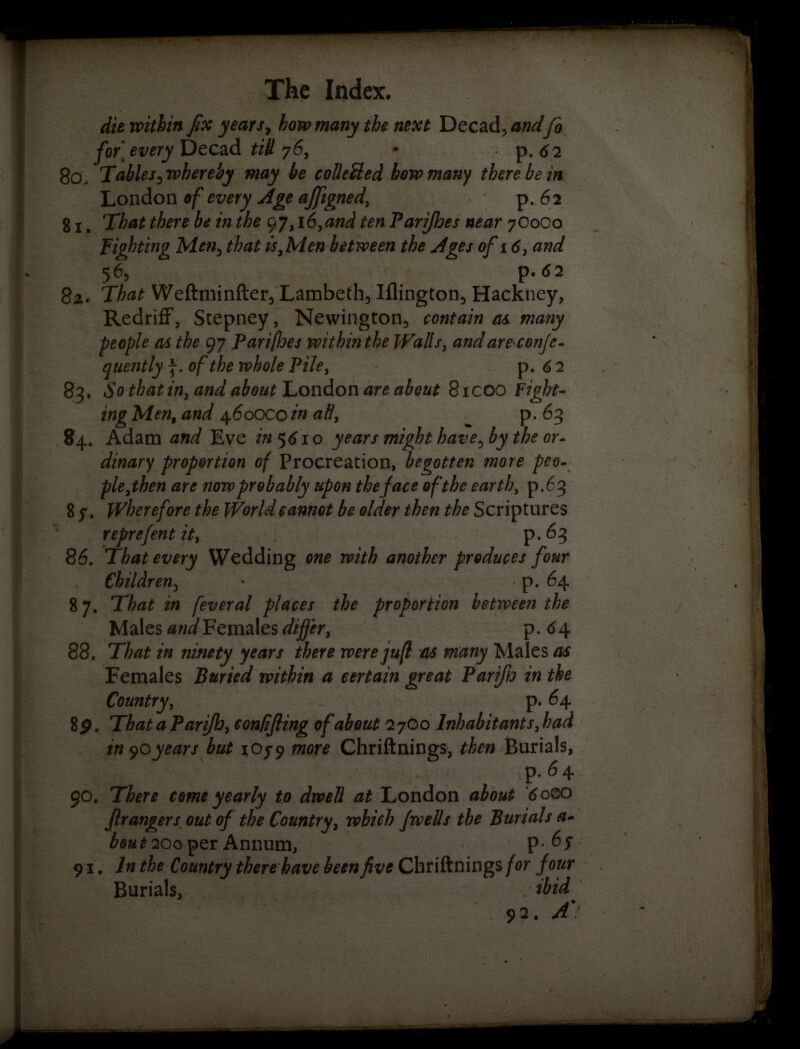 The Index.
die within ſix years, how many the next Decad, and ſo
for every Decad till 76, p. 62
80. Tables, whereby may be collected how many there be in
London of every Age aſſigned, p. 62
81. That there be in the 97, 16, and ten Pariſhes near 70000
Fighting Men, that is, Men between the Ages of 16, and
56, p. 62
82. That Weſtminſter, Lambeth, Iſlington, Hackney,
Redriff, Stepney, Newington, contain as many
people as the 97 Pariſhes within the Walls, and are conſe-
quently ⅕. of the whole Pile, p. 62
83. So that in, and about London are about 81000 Fight-
ing Men, and 460000 in all, p. 63
84. Adam and Eve in 5610 years might have, by the or-
dinary proportion of Procreation, begotten more peo-
ple, then are now probably upon the face of the earth, p. 63
85. Wherefore the World cannot be older then the Scriptures
repreſent it, p. 63
86. That every Wedding one with another produces four
Children, p. 64
87. That in ſeveral places the proportion between the
Males and Females differ, p. 64
88. That in ninety years there were juſt as many Males as
Females Buried within a certain great Pariſh in the
Country, p. 64
89. That a Pariſh, conſiſting of about 2700 Inhabitants, had
in 90 years but 1059 more Chriſtnings, then Burials,
p. 64
90. There come yearly to dwell at London about 6000
ſtrangers out of the Country, which ſwells the Burials a-
bout 200 per Annum, p. 65
91. In the Country there have been five Chriſtnings for four
Burials, ibid
92. A